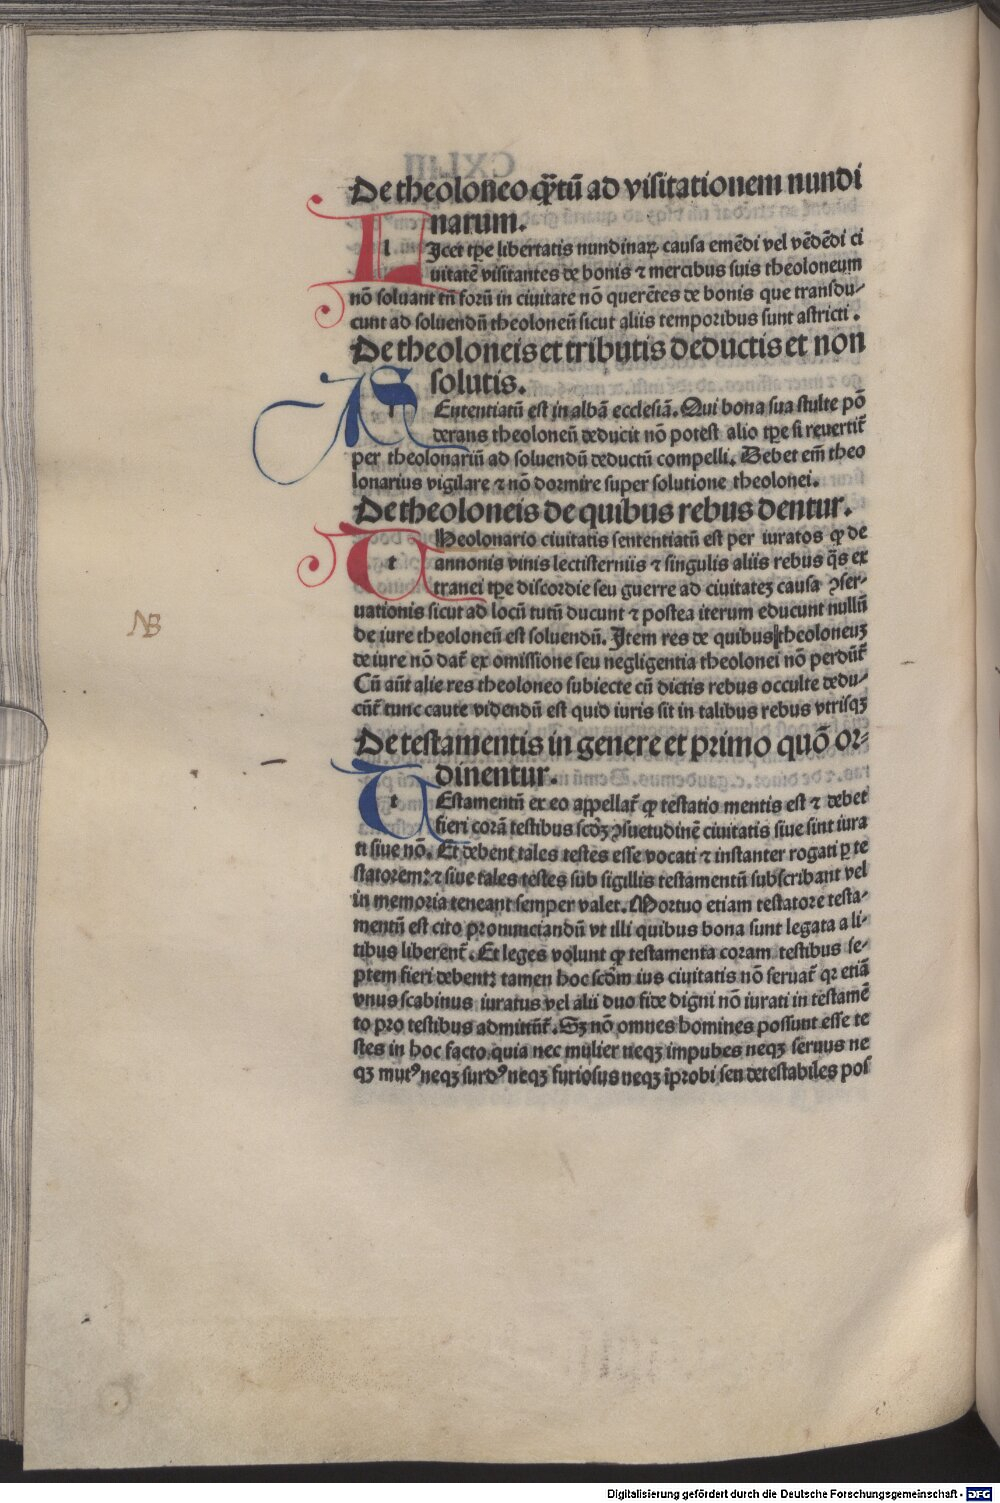 De theoloneo q̄ꝫtū ad visitationem nundi
narum.
LIcet tp̄e libertatis nundinaꝝ causa emēdi vel vēdēdi ci
uitatē visitantes de bonis ⁊ mercibus suis theoloneum
nō soluant tn̄ forū in ciuitate nō querētes de bonis que transdu⸗
cunt ad soluendū theoloneū sicut aliis temporibus sunt astricti.
De theoloneis et tributis deductis et non
solutis.
SEntentiatū est in albā ecclesiā. Qui bona sua stulte pō
derans theoloneū deducit nō potest alio tp̄e si reuertit̄
per theolonariū ad soluendū deductū compelli. Debet em̄ theo
lonarius vigilare ⁊ nō dormire super solutione theolonei.
De theoloneis de quibus rebus dentur.
THeolonario ciuitatis sententiatū est per iuratos ꝙ de
annonis vinis lectisterniis ⁊ singulis aliis rebus q̄s ex
tranei tp̄e discordie seu guerre ad ciuitateꝫ causa ꝯser⸗
uationis sicut ad locū tutū ducunt ⁊ postea iterum educunt nullū
de iure theoloneū est soluendū. Item res de quibus theoloneuꝫ
de iure nō dat̄ ex omissione seu negligentia theolonei nō perdūt̄
Cū aūt alie res theoloneo subiecte cū dictis rebus occulte dedu⸗
cūt̄ tunc caute videndū est quid iuris sit in talibus rebus vtrisqꝫ
De testamentis in genere et primo quō or⸗
dinentur.
TEstamentū ex eo appellat̄ ꝙ testatio mentis est ⁊ debet
fieri corā testibus scd̄ꝫ ꝯsuetudinē ciuitatis siue sint iura
ti siue nō. Et debent tales testes esse vocati ⁊ instanter rogati ꝑ te
statorem: ⁊ siue tales testes sub sigillis testamentū subscribant vel
in memoria teneant semper valet. Mortuo etiam testatore testa⸗
mentū est cito pronunciandū vt illi quibus bona sunt legata a li⸗
tibus liberent̄. Et leges volunt ꝙ testamenta coram testibus se⸗
ptem fieri debent: tamen hoc scd̄m ius ciuitatis nō seruat̄ qꝛ etiā
vnus scabinus iuratus vel alii duo fide digni nō iurati in testamē
to pro testibus admittūt̄. Sꝫ nō omnes homines possunt esse te
stes in hoc facto quia nec mulier neqꝫ impubes neqꝫ seruus ne
qꝫ mutꝰ neqꝫ surdꝰ neqꝫ furiosus neqꝫ īprobi seu detestabiles pos
NB
Digitalisierung gefördert durch die Deutsche Forschungsgemeinschaft - DFG